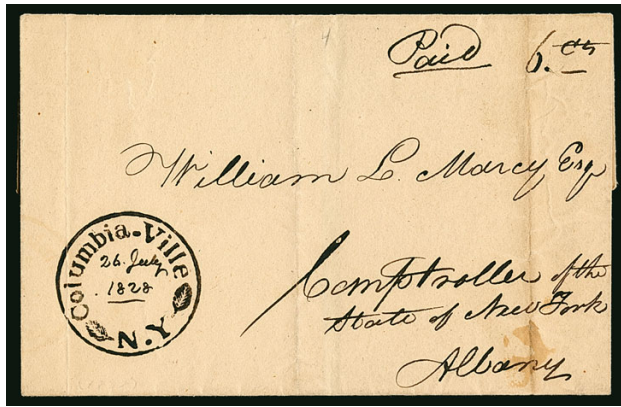 Paid 6. cts
William L. Marcy Esq
Comptroller of the
State of New York
Albany
Columbia-Ville
26 July
1828
N.Y